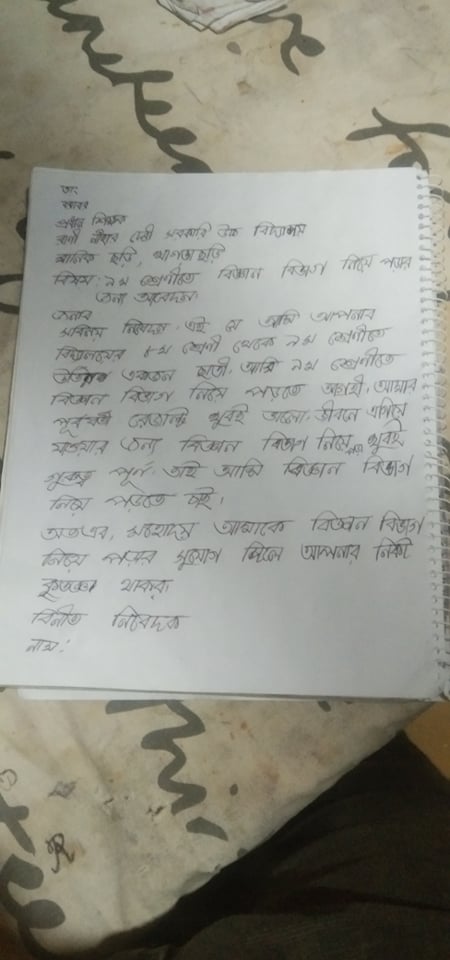 তাং
বরাবর
প্রধান শিক্ষক
রাণী নীহার দেবী সরকারি উচ্চ বিদ্যালয়
মানিক ছড়ি, খাগড়াছড়ি
বিষয়: ৯ম শ্রেণীতে বিজ্ঞান বিভাগ নিয়ে পড়ার
জন্য আবেদন।
জনাব
সবিনয় নিবেদন এই যে আমি আপনার
বিদ্যালয়ের ৮ম শ্রেণী থেকে ৯ম শ্রেণীতে
উত্তীর্ণ একজন ছাত্রী, আমি ৯ম শ্রেণীতে
বিজ্ঞান বিভাগ নিয়ে পড়তে আগ্রহী, আমার
পূর্ববর্তী রেজাল্ট খুবই ভালো। জীবনে এগিয়ে
যাওয়ার জন্য বিজ্ঞান বিভাগ নিয়ে খুবই
গুরুত্ব পূর্ন। তাই আমি বিজ্ঞান বিভাগ
নিয়ে পড়তে চাই।
অতএব, মহোদয় আমাকে বিজ্ঞান বিভাগ
নিয়ে পড়ার সুযোগ দিলে আপনার নিকট
কৃতজ্ঞ থাকব।
বিনীত নিবেদক
নাম: